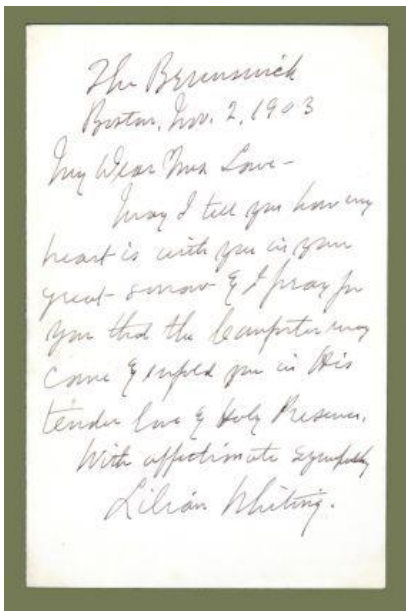 The Brunswick
Boston, Nov. 2, 1903
My Dear Mrs Lowe -
May I tell you how my
heart is with you in your
great sorrow & I pray for
you that the Comforter may
come & enfold you in His
tender love & Holy Presence.
With affectionate sympathy
Lilian Whiting.